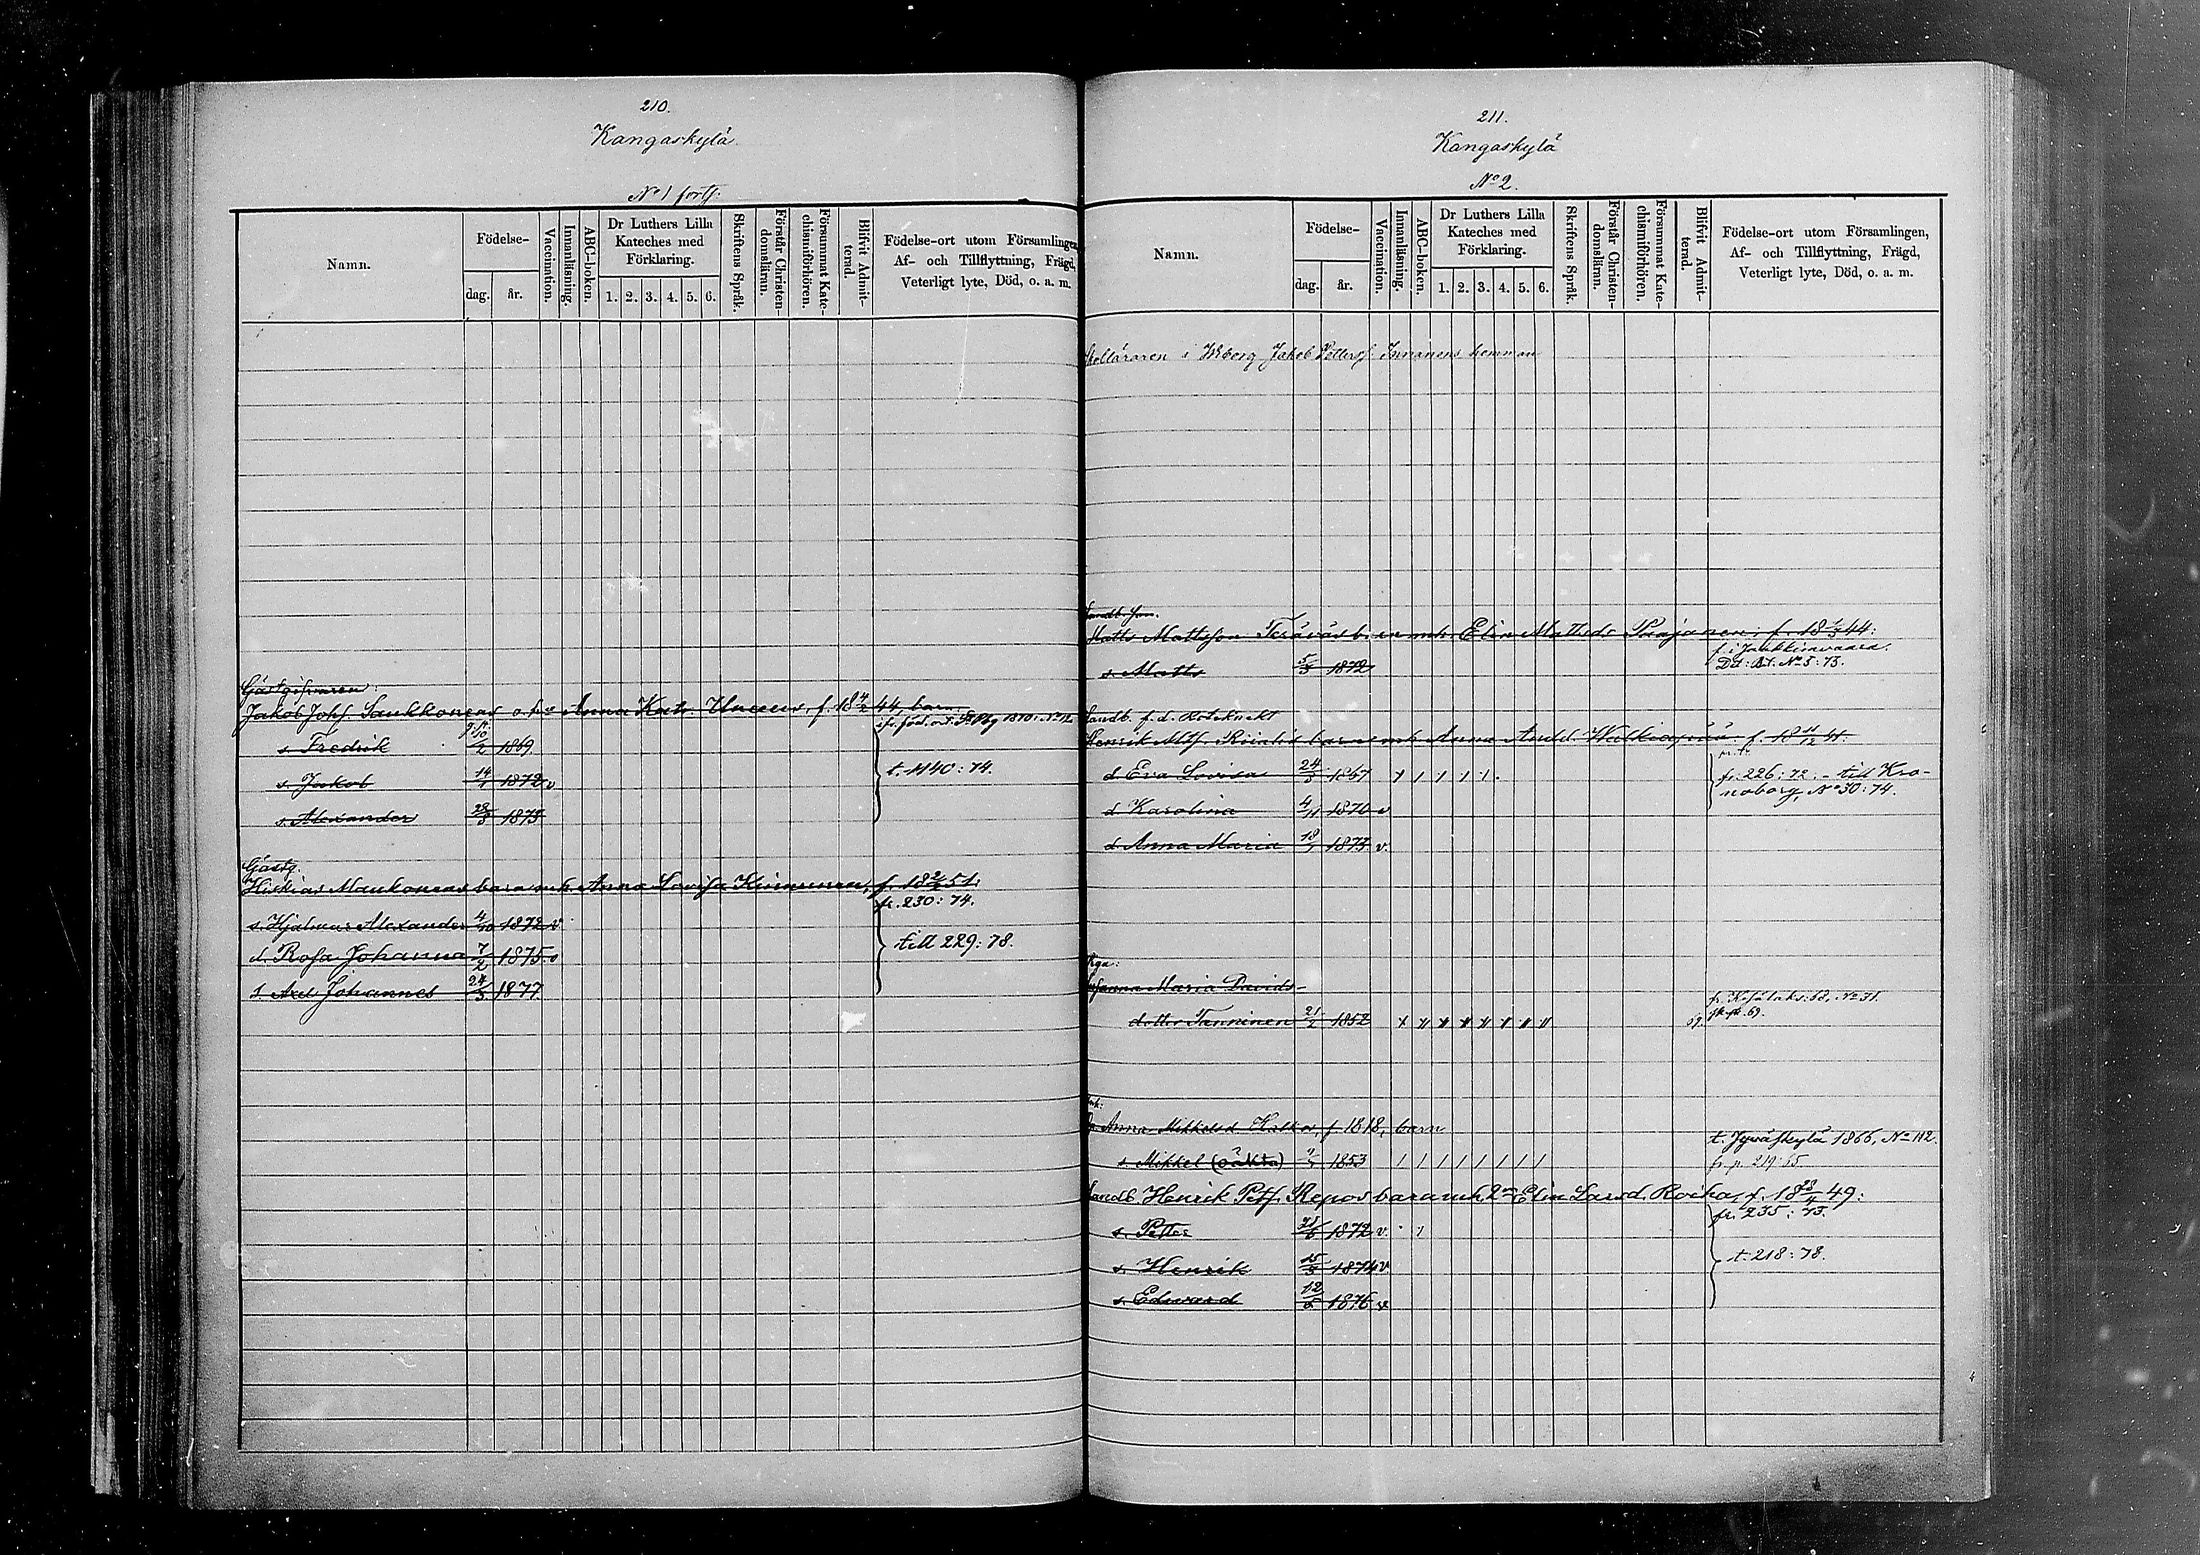 210.
Kangaskylä.
No 1 forts:
Namn.
Födelse-
dag.
år.
Vaccination.
Innanläsning.
ABC-boken.
Dr Luthers Lilla
Kateches med
Förklaring.
1. 2. 3. 4. 5. 6.
Skriftens Språk.
Förstår Christen-
domslärnn.
Försummat Kate-
chismiförhören.
Blifvit Admit-
terad.
Födelse-ort utom Församlingen,
Af- och Tillflyttning, Frägd,
Veterligt lyte, Död, o. a. m.
Gästgifvaren
Jakob Johs. Saukkonens o. h.u Anna Katr. f. 18 4/2 44, barn:
s. Fredrik 10/2 1869
s. Jakob 14/1 1872 v
t. 1140: 74.
s. Alexander 28/3 1875
Gästg.
Hiskias Maukonens barn m. h. Anna Lovisa f. 18 2/2 51:
fr. 230: 74.
s. Hjalmar Alexander 4/10 1872 v
till 229: 78.
d. Rosa Johanna 7/2 1875 v
s. Axel Johannes 24/3 1877
211.
Kangaskylä
No 2.
Namn.
Födelse-
dag.
år.
Vaccination.
Innanläsning.
ABC-boken.
Dr Luthers Lilla
Kateches med
Förklaring.
1. 2. 3. 4. 5. 6.
Skriftens Språk.
Förstår Christen-
domslärnn.
Försummat Kate-
chismiförhören.
Blifvit Admit-
terad.
Födelse-ort utom Församlingen,
Af- och Tillflyttning, Frägd,
Veterligt lyte, Död, o. a. m.
Skolläraren i Jakob Petters. Innanens hemman
Matts Mattsson m. h. Elin Mattsd. Paajanen: f. 18 1/3 44:
f. i Jaakkimvaara.
s. Matts 5/3 1872
No 5: 73.
Landb. f. d. Roteknekt
Henrik barn m. h. Anna f. 18 11/12 41:
d. Eva Lovisa 24/3 1867
fr. 226: 72: - till Kro-
noborg, No 30: 74.
d. Karolina 4/11 1870 v
d. Anna Maria 18/7 1873 v.
Susanna Maria Davids-
dotter Tanninen 21/2 1852
69.
fr. Kesälaks: 68, No 31.
Anna Mikkelsd. f. 1818, barn
t. Jyväskylä 1866, No 112.
s. Mikkel (oäkta) 1853
fr. p. 219: 65
Landb. Henrik Petts. Repos barn m. h. 2 Elin Larsd. Roiha, f. 18 28/4 49:
fr. 235: 73.
s. Petter 28/6 1872 v.
t. 218: 78.
s. Henrik 15/3 1874 v.
s. Edward 12/5 1876 v